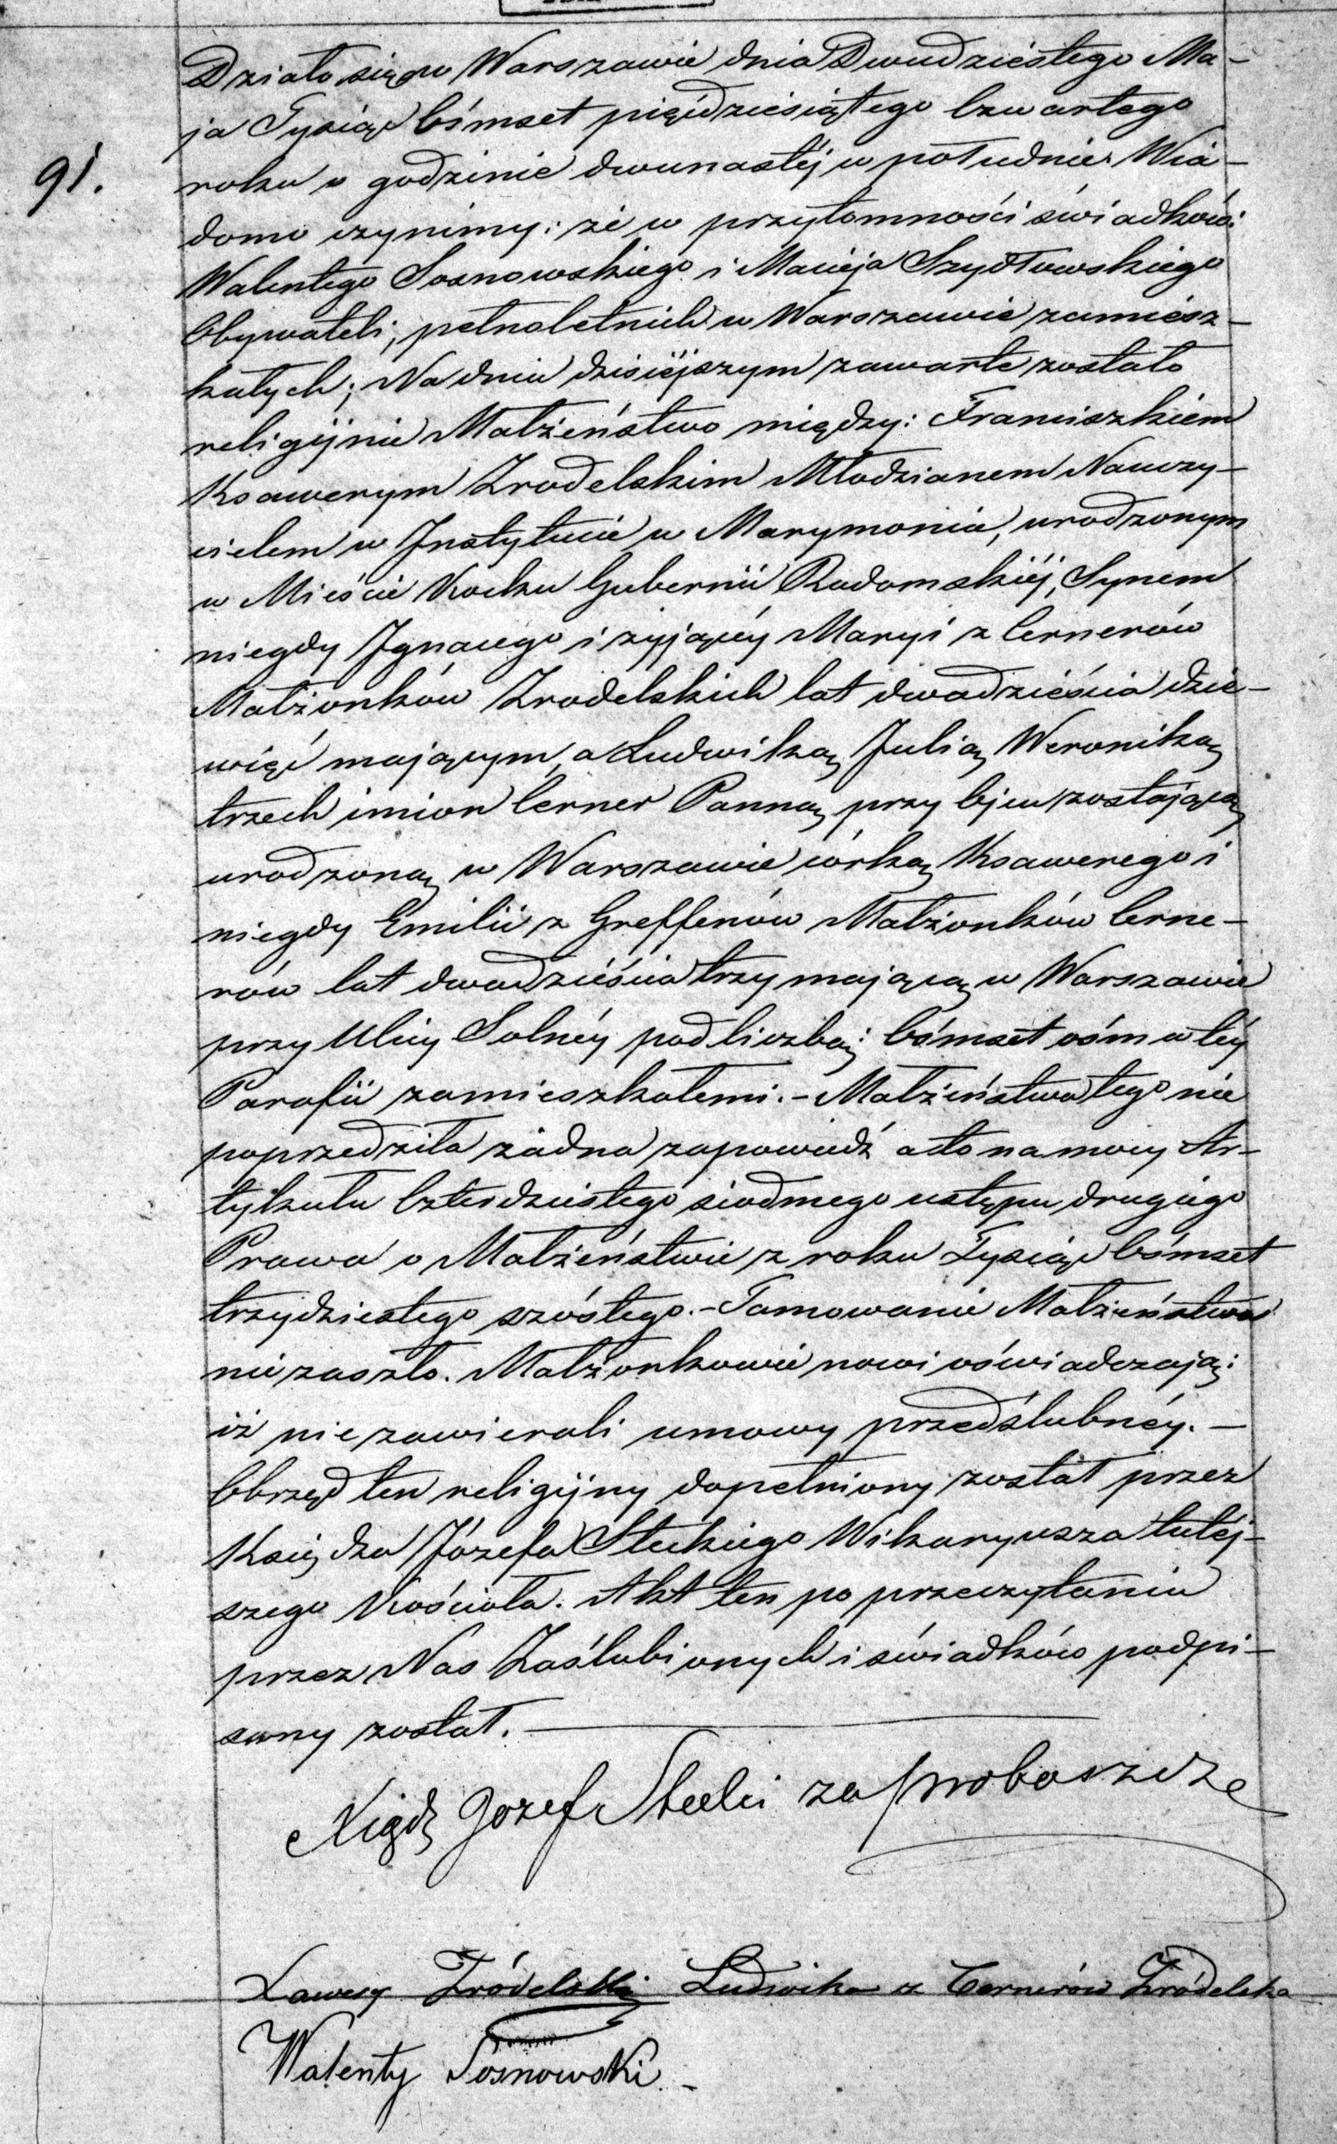 91.
Działo się w Warszawie dnia Dwudziestego Ma-
ja Tysiąc Ośmset pięćdziesiątego Czwartego
roku o godzinie dwunastéj w południe. Wia-
domo czynimy: że w przytomności świadków:
Walentego Sosnowskiego i Macieja Szydłowskiego
Obywateli, pełnoletnich w Warszawie zamiesz-
kałych; Na dniu dzisiéjszym zawarte zostało
religijnie Małżeństwo między: Franciszkiem
Ksawerym Zrodelskim Młodzianem Nauczy-
cielem w Instytucie w Marymoncie, urodzonym
w Mieście Kocku Gubernii Radomskiéj, Synem
niegdy Ignacego i żyjącéy Maryi z Cernerów
Małżonków Zrodelskich lat dwadzieścia dzie-
więć mającym, a Ludwiką Julią Weroniką
trzech imion Cerner Panną przy Ojcu zostającą
urodzoną w Warszawie córką Ksawerego i
niegdy Emilii z Greffenów Małżonków Cerne-
rów lat dwadzieścia trzy mającą w Warszawie
przy Ulicy Solnéy pod liczbą Ośmset ośm w téy
Parafii zamieszkałemi. - Małżeństwo tego nie
poprzedziła żadna zapowiedź a to na mocy Ar-
tykułu Czterdziestego siodmego ustępu drugiego
Prawa o Małżeństwie z roku Tysiąc Ośmset
trzydziestego szóstego. - Tamowanie Małżeństwa
nie zaszło. Małżonkowie nowi oświadczają:
iż nie zawierali umowy przedślubnéy. -
Obrzęd ten religijny dopełniony został przez
Księdza Józefa Steckiego Wikaryusza tutéj-
szego Kościoła. Akt ten po przeczytaniu
przez Nas Zaślubionych i świadków podpi-
sany został.
Xiądz Jozef Stecki za proboszcza
Xawery Zródelski Ludwika z Cernerów Zródelska
Walenty Sosnowski -